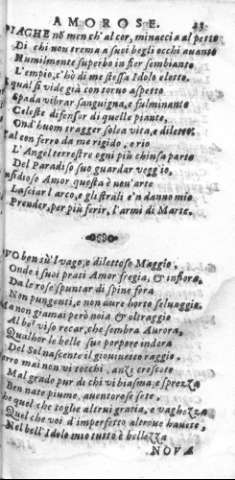 AMOROSE. 23
IAGHE nò men ch'al cor, minacci a al petto
Di chi non trema a suoi begli occhi auante
Humilmente superbo in fier sembiante
L'empio, c'hò di me stessa Idolo eletto.
qual si vide già con toruo aspetto
Spada vibrar sanguigna, e fulminante
Celeste difensor di quelle piante
Ond'huom tragger solea vita, e diletto.
al con ferro da me rigido, e rio
L'Angel terrestre ogni più chiusa parte
Del Paradiso suo guardar vegg'io.
nsidioso Amor questa è nou'arte
Lasciar l'arco, e gli strali e'n danno mio
Prender, per più ferir, l'armi di Marte.
VO ben sù'l vago, e dilettoso Maggio,
Onde i suoi prati Amor fregia, & infiora
Da le rose spuntar di spine fora
Non pungenti, e non aure horto seluaggio.
Ma non giamai però noia & oltraggio
Al bel viso recar, che sembra Aurora,
Qualhor le belle sue porpore indora
Del Sol nascente il giouinetto raggio.
orrò mai non vi tocchi, anzi crescete
Mal grado pur di chi vi biasma, e sprezza
Ben nate piume, auenturose sete,
he quel che toglie altrui gratia, e vaghezza
Quel che voi d'imperfetto altroue hauete,
Nel bell'Idolo mio tutto è bellezza
NOVA